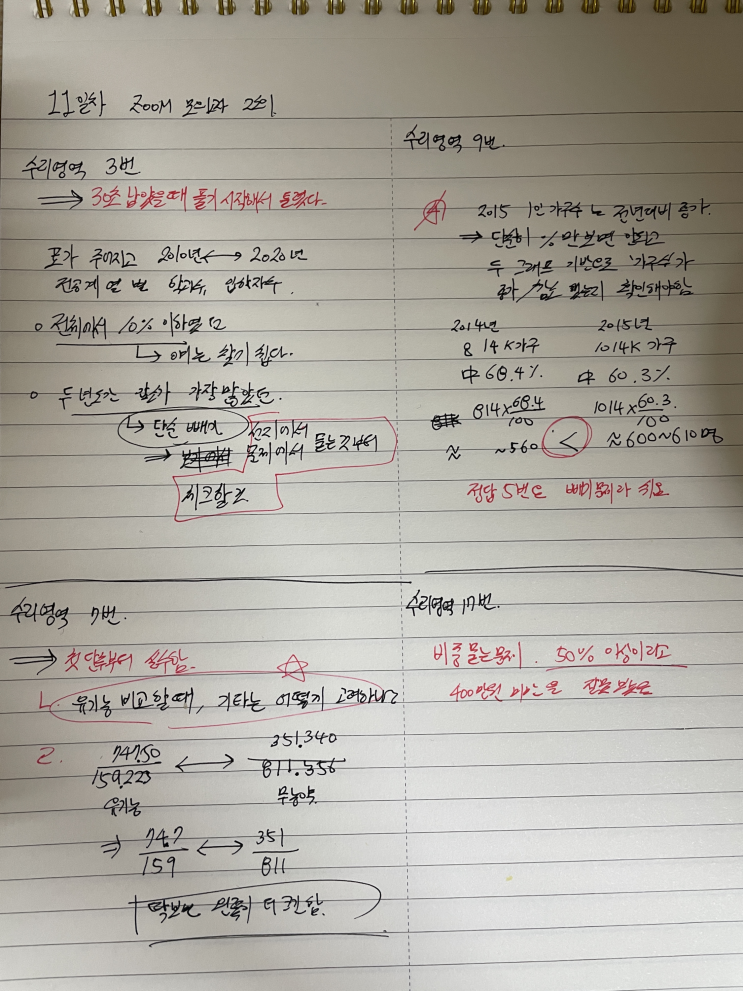 11일차 ZOOM 모의고사 2회
수리영역 3번
⇒ 30초 남았을때 풀기 시작해서 틀렸다.
표가 주어지고 2010년 ↔ 2020년
전공계열 별 학과수, 입학자수.
○ 전체에서 10% 이하였던
↳ 얘는 찾기 쉽다.
○ 두 년도간 격차 가장 많았던
↳ 단순 빼기
선지에서
⇒ 문제에서 묻는것부터
체크할 것
수리영역 9번.
2015 1인 가구수는 전년대비 증가.
→ 단순히 %만 보면 안되고
두 그래프 기반으로 '가구수'가
증가/감소 했는지 확인해야함
2014년 2015년
814K가구 1014K가구
中 68.4% 中 60.3%
814×68.4/100 1014×60.3/100
≈ ~560 < ≈600~610명
정답 5번도 빼기문제라 쉬움
수리영역 7번
⇒ 첫 단추부터 실수함.
유기농 비교할 때, 기타는 어떻게 고려하냐?
2. 747.50/159.223 ↔ 351.340/811.356
유기농 무농약
⇒ 74.7/159 ↔ 351/811
딱보면 왼쪽이 더 큰함.
수리영역 17번.
비중 묻는 문제. 50% 이상이라고
400만원 미만을 잘못 봤음